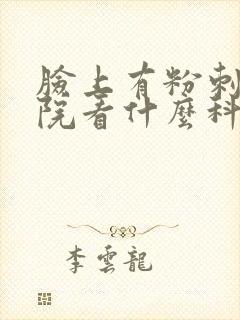 臉上有粉刺
院看什麼科
李雲龍